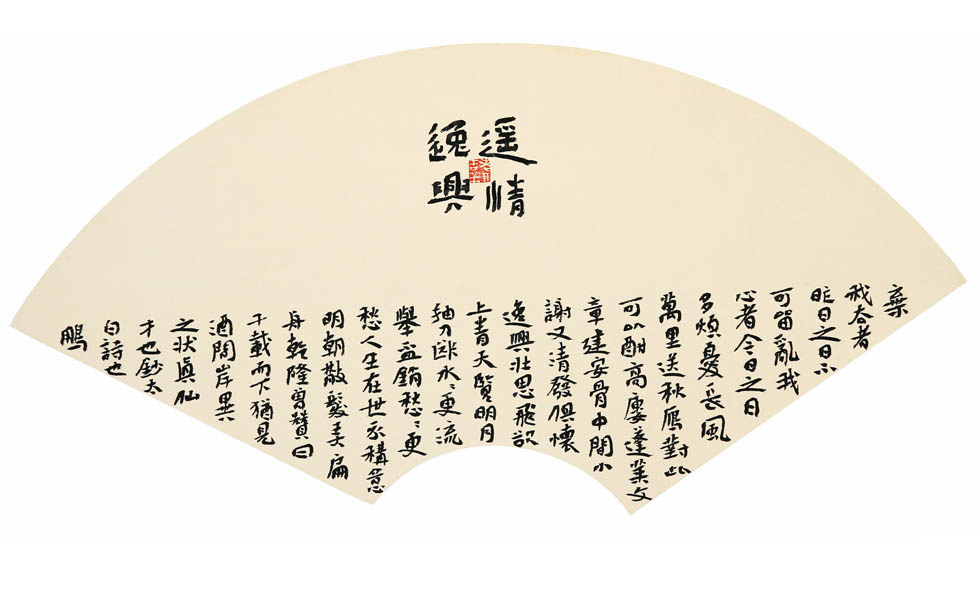 遥情
逸興
棄
我去者
昨日之日不
可留亂我
心者今日之日
多煩憂長風
萬里送秋雁對此
可以酣高廔蓬萊文
章建安骨中間小
謝又清發俱懷
逸興壯思飛欲
上青天覽明月
抽刀斷水〻更流
舉盃銷愁〻更
愁人生在世不稱意
明朝散髮弄扁
舟乾隆曾贊曰
千載而下猶見
酒闊岸異
之狀真仙
才也鈔太
白詩也
鵬